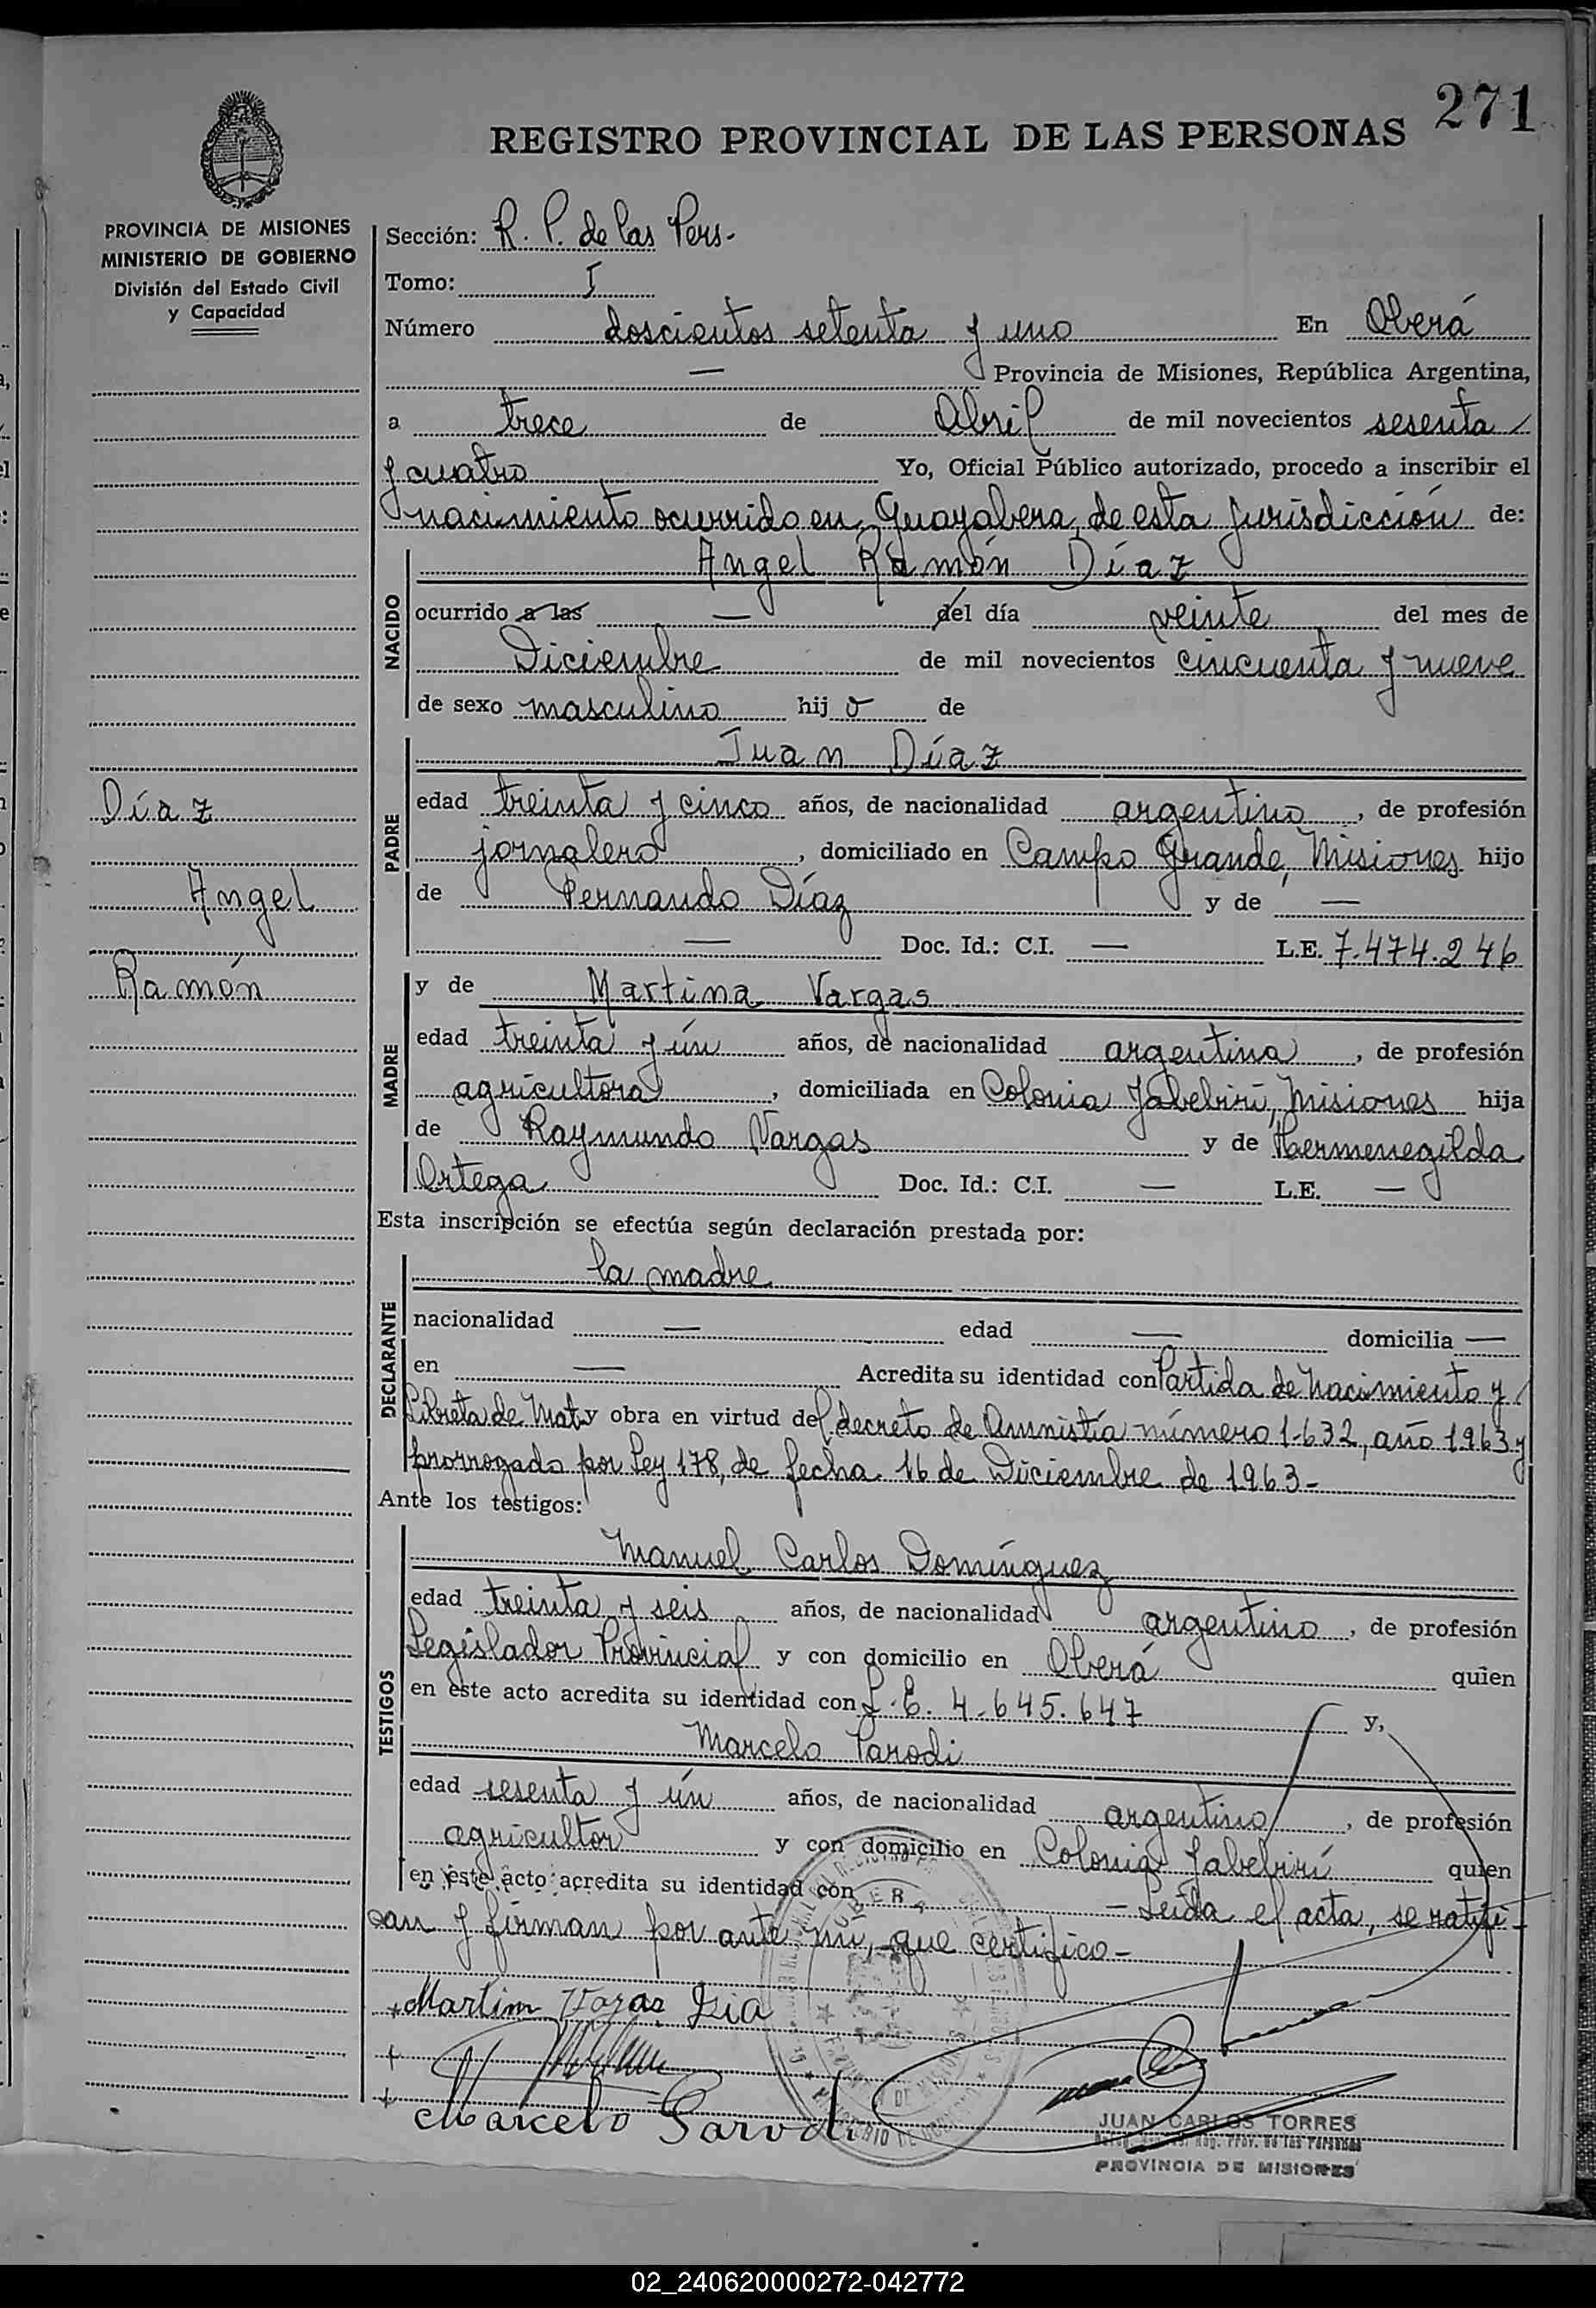 271
REGISTRO PROVINCIAL DE LAS PERSONAS
PROVINCIA DE MISIONES
MINISTERIO DE GOBIERNO
División del Estado Civil
y Capacidad
Díaz
Angel
Ramón
Sección: R. P. de las Pers.
Tomo: I
Número doscientos setenta y uno En Oberá
— Provincia de Misiones, República Argentina,
a trece de Abril de mil novecientos sesenta
y cuatro Yo, Oficial Público autorizado, procedo a inscribir el
nacimiento ocurrido en Guayabera, de esta Jurisdicción de:
NACIDO
Angel Ramón Díaz
ocurrido a las — del día veinte del mes de
Diciembre de mil novecientos cincuenta y nueve
de sexo masculino hijo de
PADRE
Juan Díaz
edad treinta y cinco años, de nacionalidad argentino, de profesión
jornalero, domiciliado en Campo Grande, Misiones hijo
de Fernando Díaz y de —
— Doc. Id.: C.I. — L.E. 7.474.246
MADRE
y de Martina Vargas
edad treinta y ún años, de nacionalidad argentina, de profesión
agricultora, domiciliada en Colonia Yabebirí, Misiones hija
de Raymundo Vargas y de Hermenegilda
Ortega Doc. Id.: C.I. — L.E. —
Esta inscripción se efectúa según declaración prestada por:
DECLARANTE
la madre
nacionalidad — edad — domicilia —
en — Acredita su identidad con Partida de Nacimiento y
Libreta de Mat. y obra en virtud del decreto de Amnistía número 1.632, año 1963 y
prorrogado por Ley 178, de fecha 16 de Diciembre de 1963-
Ante los testigos:
TESTIGOS
Manuel Carlos Domínguez
edad treinta y seis años, de nacionalidad argentino, de profesión
Legislador Provincial y con domicilio en Oberá quien
en este acto acredita su identidad con L.E. 4.645.647 y,
Marcelo Parodi
edad sesenta y ún años, de nacionalidad argentino, de profesión
agricultor y con domicilio en Colonia Yabebirí quien
en este acto acredita su identidad con — Leída el acta, se ratifi-
can y firman por ante mí, que certifico-
OBERA
Marcelo Parodi
JUAN CARLOS TORRES
Reg. Prov. de las Personas
PROVINCIA DE MISIONES
02_240620000272-042772